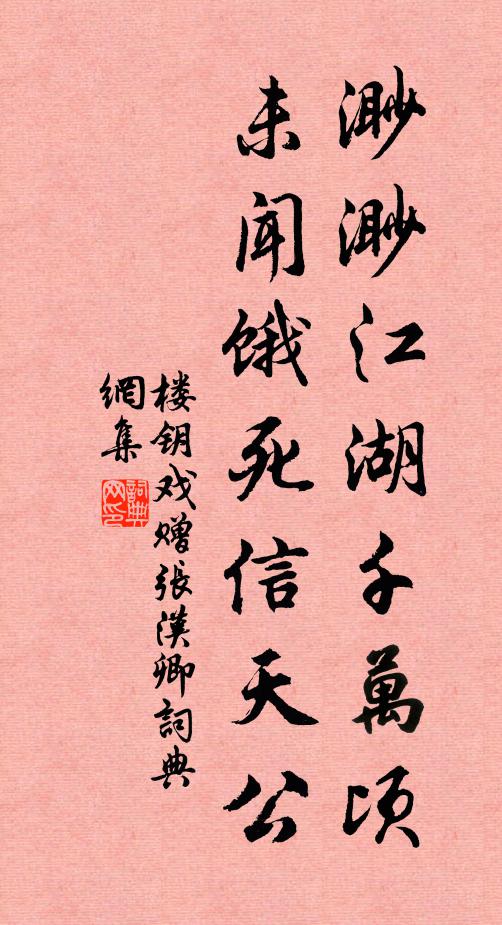 渺渺江湖千萬頃
未聞餓死信天公
楼钥戏赠張漢卿詞典
網集
詞典
网印